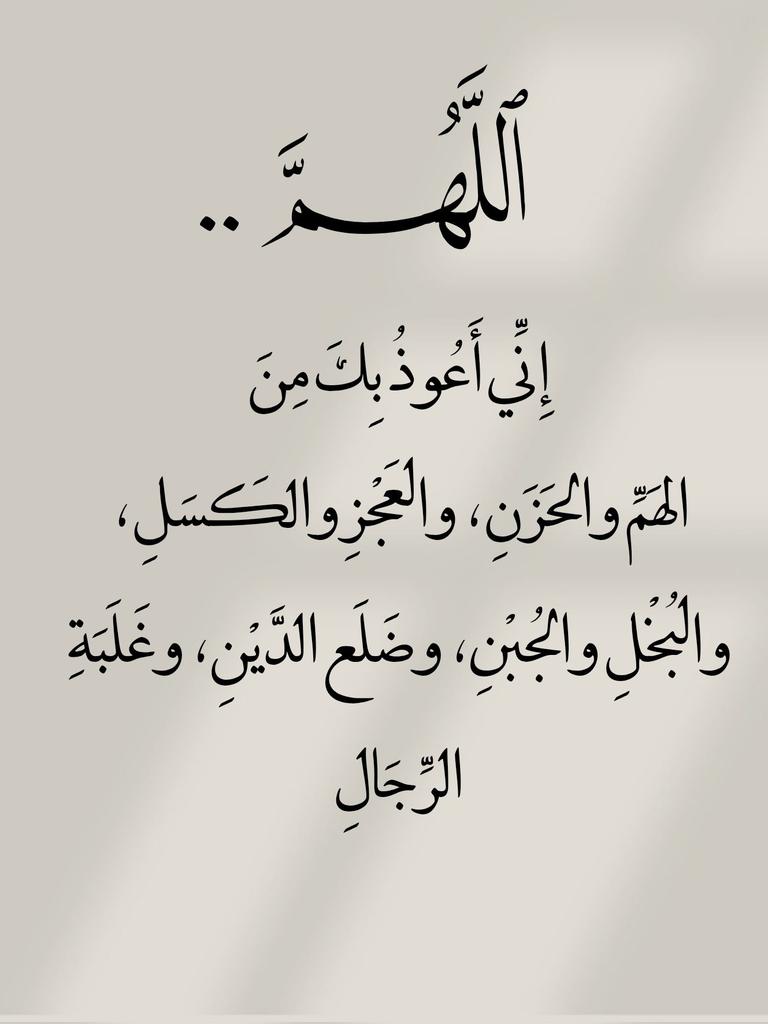 ٱللَّهُمَّ ..
إِنِّي أَعُوذُ بِكَ مِنَ
الهَمِّ والحَزَنِ، والعَجْزِ والكَسَلِ،
والبُخْلِ والجُبْنِ، وضَلَع الدَّيْنِ، وغَلَبَةِ
الرِّجَالِ